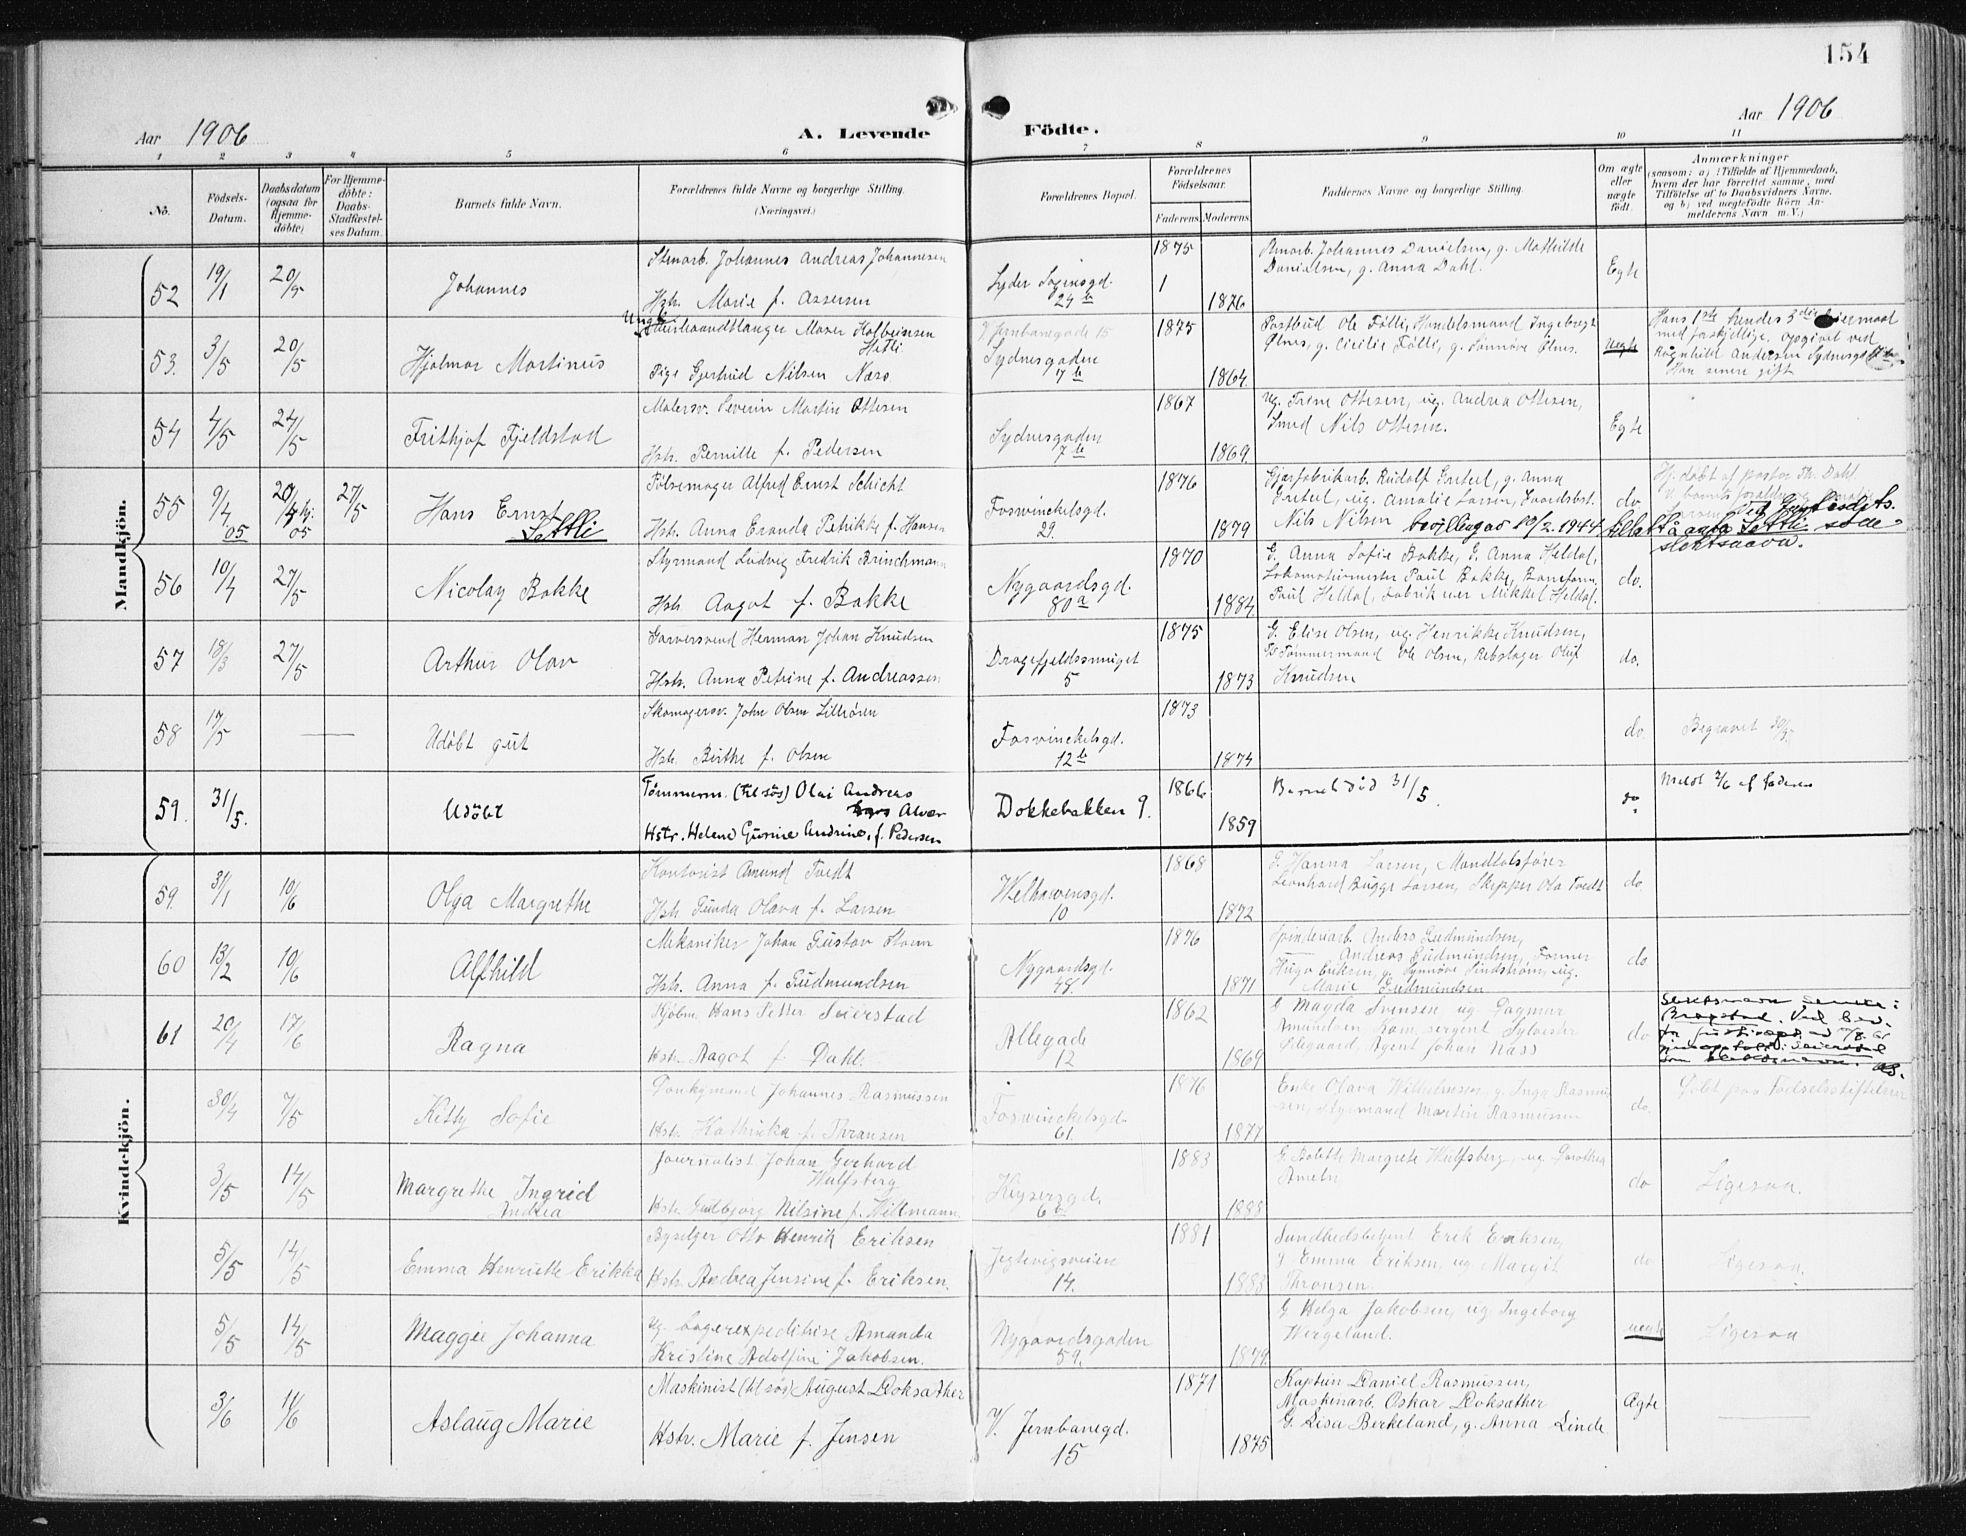 154
Aar 1906
A. Levende Födte.
Aar 1906
1 2 3 4 5 6 7 8 9 10 11
No.
Födsels-Datum.
Daabsdatum (ogsaa for Hjemmedöbte)
For Hjemmedöbte: Daabs-Stadfæstelses Datum.
Barnets fulde Navn.
Forældrenes fulde Navne og borgerlige Stilling.
(Næringsvei.)
Forældrenes Bopæl.
Forældrenes Födselsaar.
Faderens Moderens
Faddernes Navne og borgerlige Stilling.
Om ægte eller uægte født.
Anmærkninger
(saasom: a) i Tilfælde af Hjemmedaab, hvem der har forrettet samme, med Tilföielse af to Daabsvidners Navne, og b) ved uægtefödte Börn Anmelderens Navn m. V.)
Mandkjön.
52 19/1 20/5 Johannes
Stenarb. Johannes Andreas Johannesen
Hstr. Marie f. Assersen
24 b
1875 1876
Stenarb. Johannes Danielsen, g. Mathilde
Danielsen, g. Anna Dahl.
Egte
53. 3/5 20/5 Hjalmar Martinus
Pige Gjertrud Nilsen Næss
V Jernbanegade 15
Sydnesgaden
7 b
1875 1864
Postbud Ole Fölli, Handelsmand Ingebregt
Ølnes, g. Cicilie Fölli, g. Sønnöve Ølnes.
Uegte
med forskjellige. Opgivet ved
Ragnhild Andersen Sydnesgd
Han senere gift
54 4/5 24/5 Frithjof Fjeldstad
Malersv. Severin Martin Ottesen
Hstr. Pernille f. Pedersen
Sydnesgaden
7 b
1867 1869
ug. Trine Ottesen, ug. Andrea Ottesen,
Smed Nils Ottesen.
Egte
55 9/4 05 27/5 Hans Ernst
Settli
Pölsemager Alfred Ernst Schicht
Hstr. Anna Eranda Petrikke f. Hansen
Fosvinckelsgd.
29.
1876 1879
Nils Nilsen bevilling av 10/2. 1944 å anta Settli som
slektsnavn.
do
Hj. døbt af pastor Th. Dahl
56 10/4 27/5 Nicolay Bakke
Styrmand Ludvig Fredrik Brinchmann
Hstr. Aagot f. Bakke
Nygaardsgd.
80 a
1870 1884
G. Anna Sofie Bakke, G. Anna Heldal,
Lokomotivmester Paul Bakke, Baneform.
Paul Heldal, Fabrikeier Mikkel Heldal.
do.
57 18/3 27/5 Arthur Olav
Garversvend Herman Johan Knudsen
Hstr. Anna Petrine f. Andreassen
Dragefjeldssmuget
5
1875 1873
G. Elise Olsen, ug. Henrikke Knudsen,
Tömmermand Ole Olsen, Rebslager Oluf
Knudsen
do.
58 17/5 — Udöbt gut
Skomagersv. John Olsen Lilleören
Hstr. Birthe f. Olsen
Fosvinckelsgd.
12 b
1873 1874
do. Begravet
59. 31/5. Udöbt
Tömmerm. (til søs) Olai Andreas
Alver
Hstr. Helene Gurine Andrine, f. Pedersen
Dokkebakken 9.
1866 1859
Barnet död 31/5.
do
Meldt 2/6 af faderen
Kvindekjön.
59. 31/1 10/6 Olga Margrethe
Kontorist Amund Tvedt
Hstr. Gunda Olava f. Larsen
Welhavensgd.
10
1868 1872
G. Hanna Larsen, Mandtalsfører
Leonhard Bugge Larsen, Skipper Ola Tvedt
do.
60 13/2 10/6 Alfhild
Mekaniker Johan Gustav Storm
Hstr. Anna f. Gudmundsen
Nygaardsgd.
48.
1876 1871
Spinderiarb. Anders Gudmundsen,
Andreas Gudmundsen, Former
Hugo Eriksen, g. Synnöve Lindström, ug.
Marie Gudmundsen
do
61 20/4 17/6 Ragna
Kjöbm. Hans Petter Seierstad
Hstr. Aagot f. Dahl.
Allegade
12
1862 1869
G Magda Svensen ug Dagmar
Amundsen Kom. sergent Sylvester
Ødegaard, Agent Johan Næss
do
30/4 7/5 Kitty Sofie
Donkymand Johannes Rasmussen
Hstr Kathinka f. Thransen
Fosvinckelsgd.
61.
1876 1877
Enke Olava Wilhelmsen, g. Inga Rasmus
sen, Styrmand Martin Rasmussen
do.
Døbt paa Fødselsstiftelsen
3/5 14/5 Margrethe Ingrid
Andrea
Journalist Johan Gerhard
Wulfsberg
Hstr Gudbjørg Nilsine f. Wiltmann.
Keysersgd.
1883 1888
G Bolette Margrete Wulfsberg, ug Dorothea
Ameln
do Ligesaa.
5/5 14/5 Emma Henriette Erikka
Byselger Otto Henrik Eriksen
Hstr. Andrea Jensine f. Eriksen.
Jegtevigsveien
14.
1881 1883
Sundhedsbetjent Erik Eriksen,
g Emma Eriksen, ug Margit
Thronsen.
do Ligesaa.
5/5 14/5 Maggie Johanna
ug. Lagerexpeditrise Amanda
Kristine Adolfine Jakobsen.
Nygaardsgaden
59.
1879
G Helga Jakobsen, ug Ingeborg
Hergeland.
uegte Ligesaa
3/6 11/6 Aslaug Marie
Maskinist (til søs) August Doksæther
Hstr. Marie f. Jensen
V. Jernbanegd.
15
1871 1875
Kaptein Daniel Rasmussen,
Maskinarb. Oskar Doksæther
G. Lisa Berkeland, g. Anna Linde
Ægte —